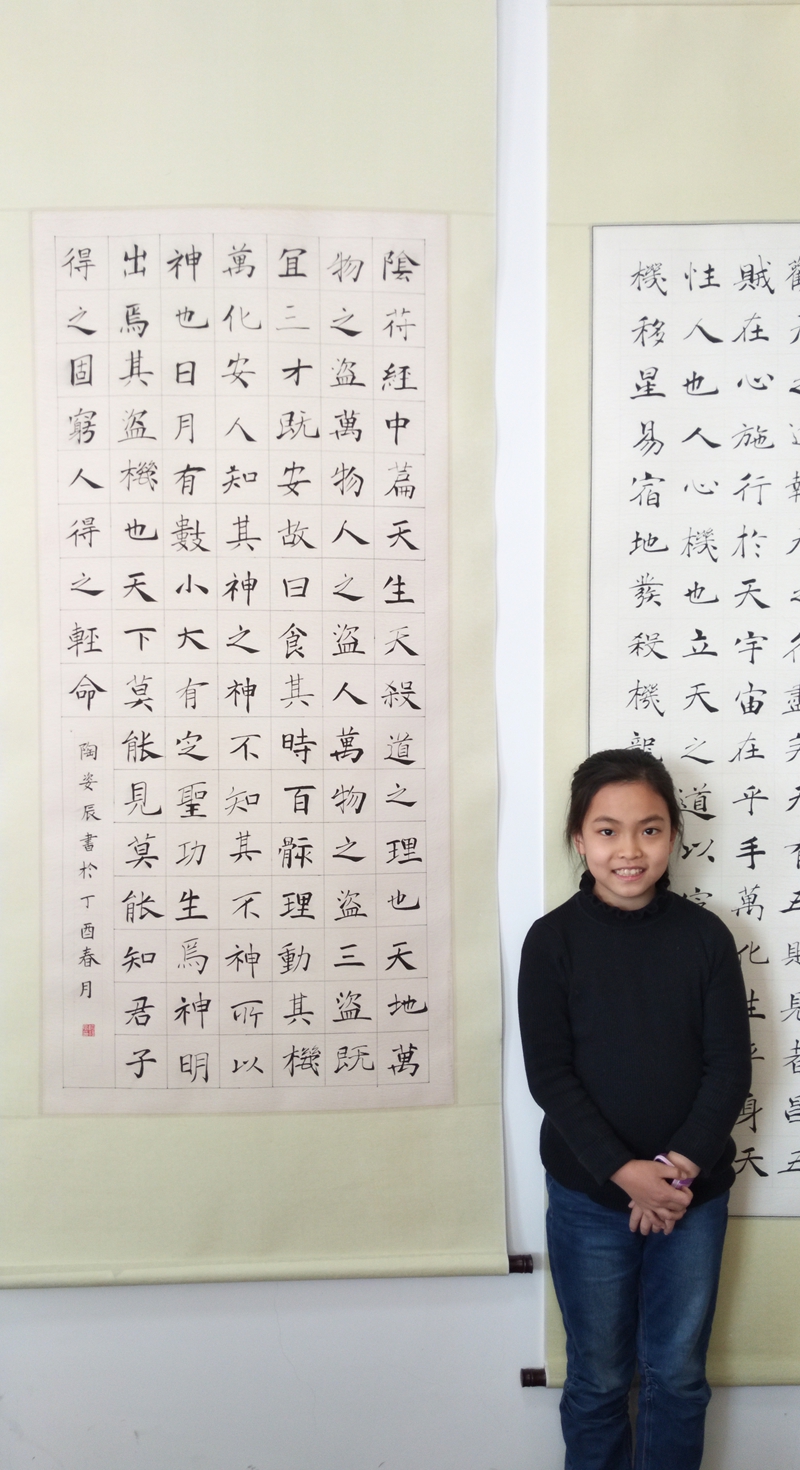 觀天之道執天之行盡矣天有五賊見者昌五
賊在心施行於天宇宙在乎手萬化生乎身天
性人也人心機也立天之道以定
機移星易宿地發殺機龍
陰苻經中篇天生天殺道之理也天地萬
物之盗萬物人之盗人萬物之盗三盗既
宜三才既安故曰食其時百骸理動其機
萬化安人知其神之神不知其不神所以
神也日月有數小大有定聖功生焉神明
出焉其盗機也天下莫能見莫能知君子
得之固窮人得之輕命
陶姿辰書於丁酉春月